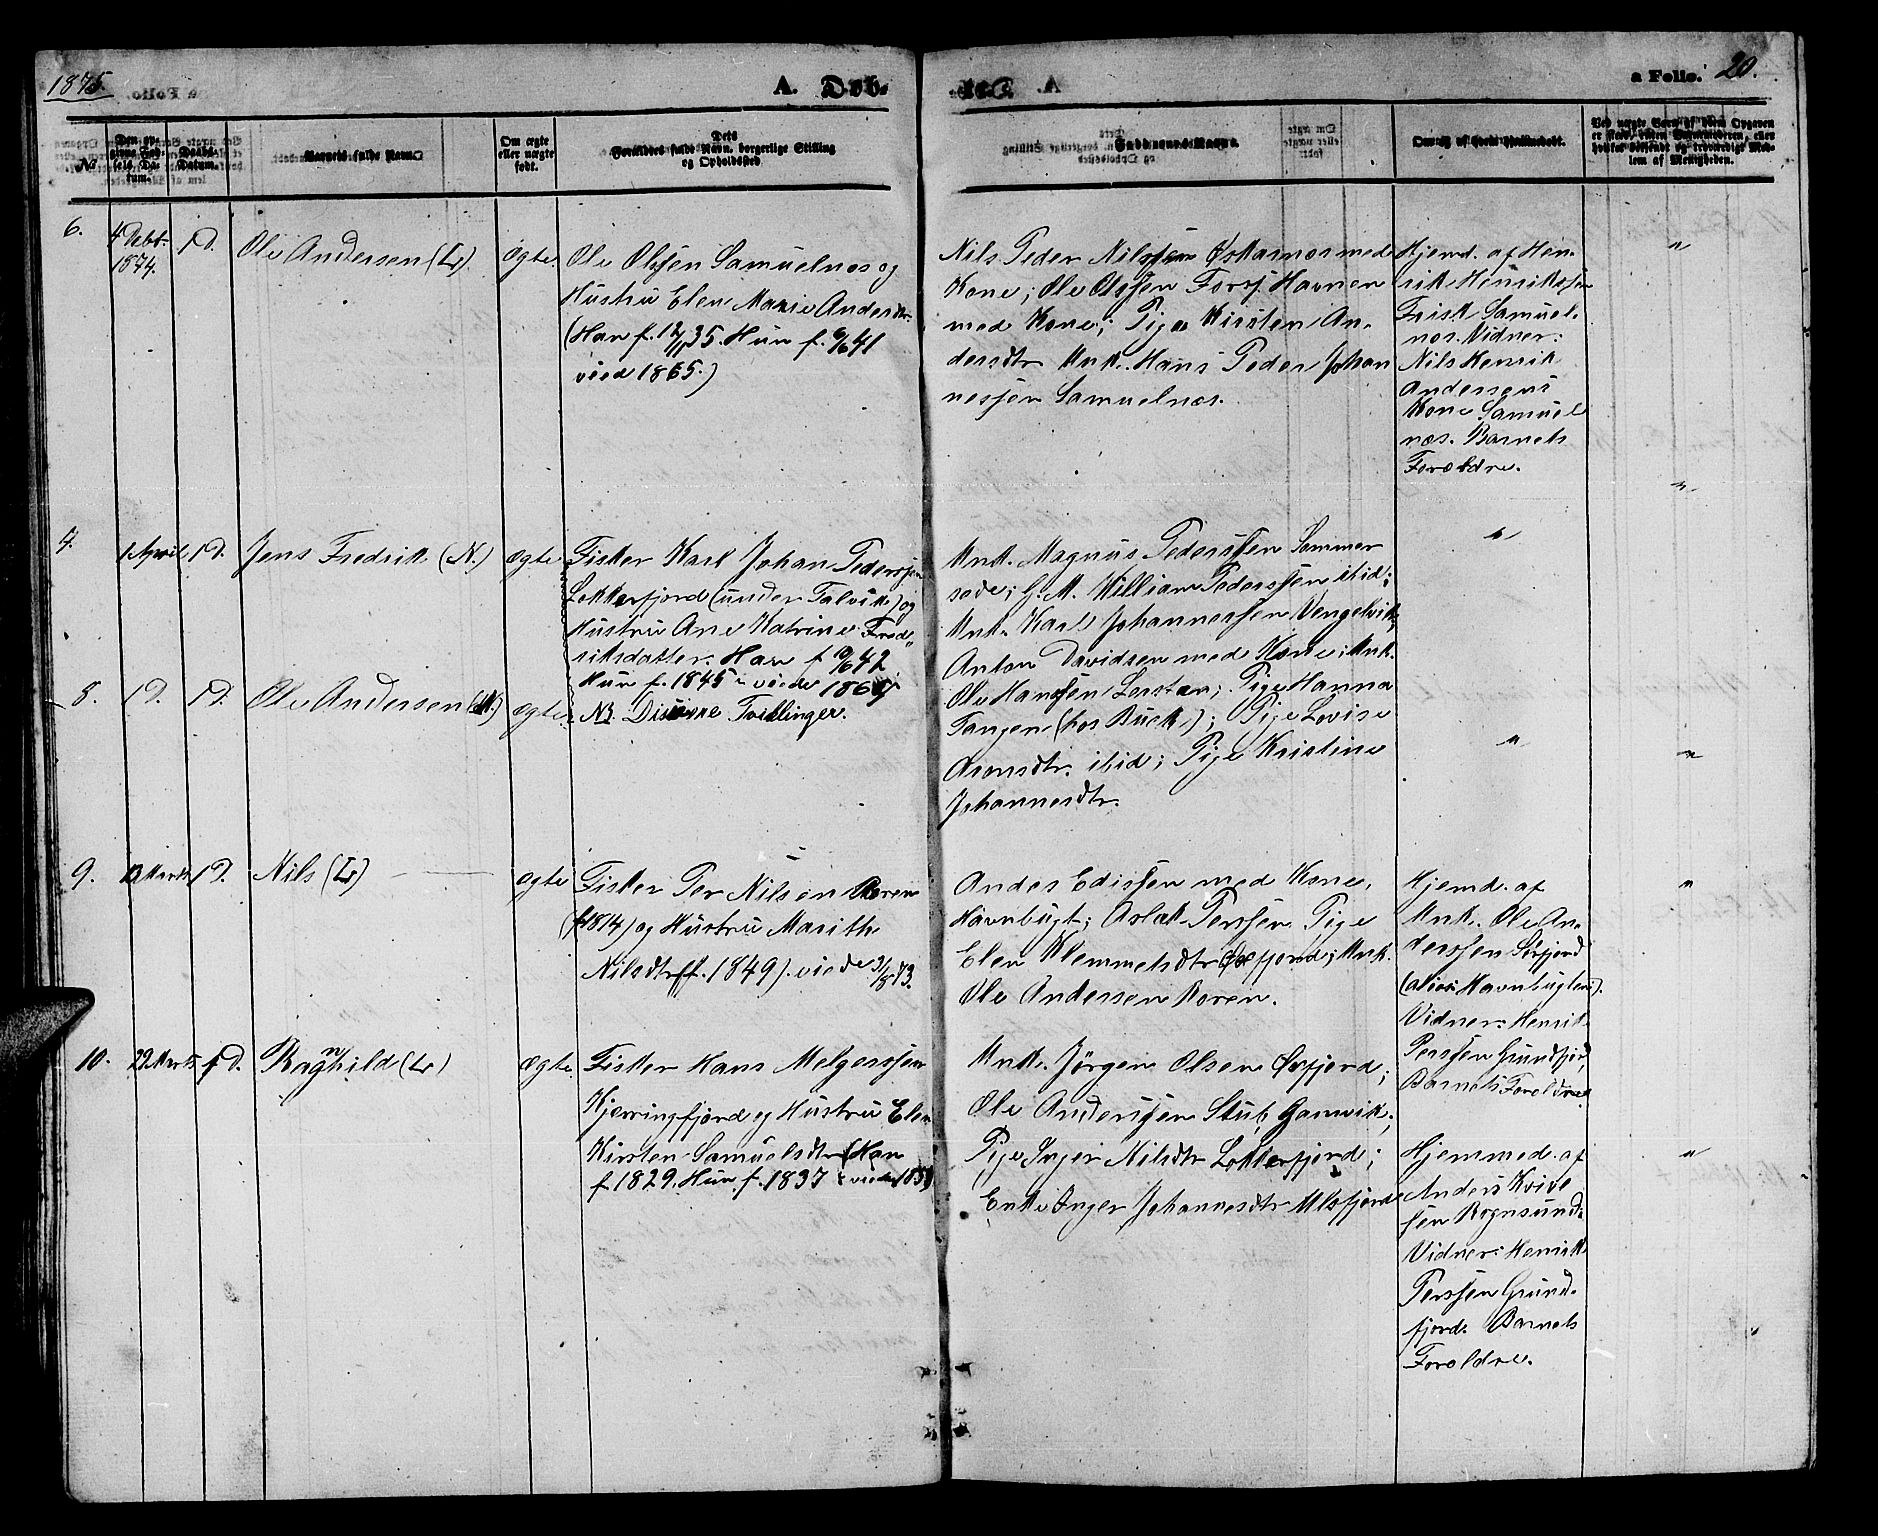 1875.
A. Døb.
a Folio. 20.
No
Den opgivne Fødsels Datum.
Daabs-Datum.
Barnets fulde Navn.
Om ægte eller uægte født.
Dets Forældres fulde Navn, borgerlige Stilling og Opholdssted.
Faddernes Navne.
Om og af hvem hjemmedøbt.
6.
4 Debr. 1874.
1 D.
Ole Andersen (L).
ægte.
Ole Olsen Samuelnæs og
Hustru Elen Marie Andersdtr.
(Han f. 12/1 35. Hun f. 41
viede 1865.)
Nils Peder Nilssen Oskarnæs med
Kone; Ole Olssen Forsj. Havnen
med Kone; Pige Kirsten An-
dersdtr Unk. Hans Peder Johan
nessen Samuelnæs.
Hjemd. af Hen-
rik Henrikssen
Frisk Samuel-
næs. Vidner:
Nils Henrik
Andersens
Kone Samuel
næs. Barnets
Forældre.
"
7.
1 April
1 D.
Jens Fredrik (N.)
ægte
Fisker Karl Johan Pederssen
Lekkerfjord (under Talvik) og
Hustru Ane Katrine Fred-
riksdatter. Han f 42
Hun f. 1845 viede 186
Unk. Magnus Pederssen Sommer
sede; G. M. William Pederssen ibid;
Unk. Karl Johannessen Vengelvik;
Anton Davidsen med Kone; Unk.
Ole Hanssen Lerstan; Pige Hanna
Tangen (hos Buck); Pige Lovise
Aronsdtr. ibid; Pige Kristine
Johannesdtr.
"
8.
1 D.
1 D.
Ole Andersen (N.)
ægte.
NB. Disse ere Tvillinger.
"
"
9.
13 Marts
1 D.
Nils (L)
ægte
Fisker Per Nilsen Koren
(f. 1814) og Hustru Marith
Nilsdtr (f. 1849). viede 3/8 73.
Anders Edissen med Kone,
Havnbugt; Aslak Perssen Pige
Elen Klemmetsdtr Øxfjord; Unk.
Ole Andersen Koren.
Hjemd. af
Unk. Ole An-
derssen Sørfjord
(alias Havnbugten).
Vidner: Henrik
Perssen Grundfjord,
Barnets Forældre.
"
10.
22 Marts
1 D.
Ragnhild (L)
ægte.
Fisker Hans Melgerssen
Kjerringfjord og Hustru Elen
Kirsten Samuelsdtr (Han
f. 1829. Hun f. 1837 viede 185
Unk. Jörgen Olsen Øxfjord;
Ole Anderssen Stub Gamvik;
Pige Inger Nilsdtr Lekkerfjord;
Enke Inger Johannesdtr Ulsfjord
Hjemmed. af
Anders Kvive
sen Rognsund.
Vidner: Henrik
Perssen Grund-
fjord. Barnets
Forældre.
"